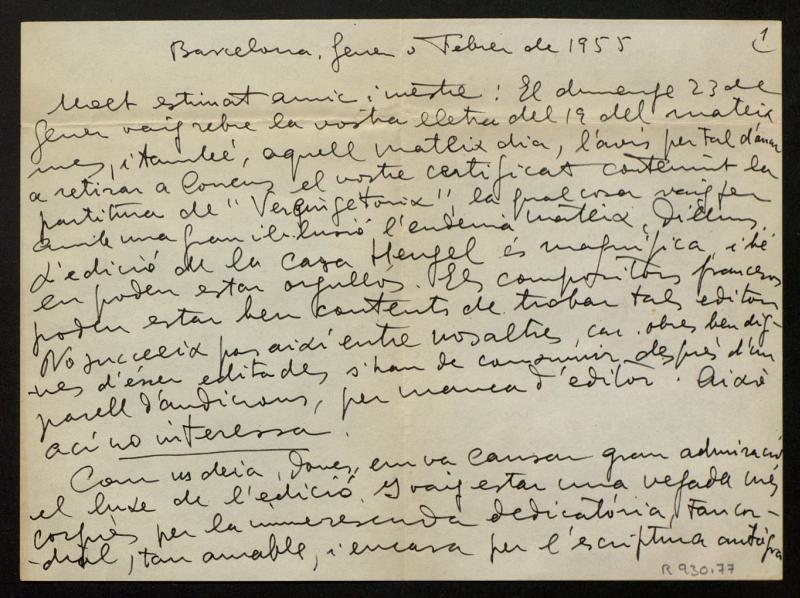 1
Barcelona, Gener o Febrer de 1955
Molt estimat amic i mestre: El diumenge 23 de
gener vaig rebre la vostra lletra del 19 del mateix
mes, i també, aquell mateix dia, l'avís per tal d'anar
a retirar a Correus el vostre certificat contenint la
partitura de "Vercingetorix", la qual cosa vaig fer
amb una gran il·lusió l'endemà mateix, dilluns.
L'edició de la casa Hengel és magnífica, i bé
en poden estar orgullós. Els compositors francesos
poden estar ben contents de trobar tals editors
No succeeix pas així entre nosaltres, car obres ben dig-
nes d'ésser editades s'han de consumir, després d'un
parell d'audicions, per manca d'editor. Això
ací no interessa.
Com us deia, doncs, em va causar gran admiració
el luxe de l'edició. I vaig estar una vegada més
corprès per la immerescuda dedicatòria, tan cor-
-dial, tan amable, i encara per l'escriptura autògra
R 930.77